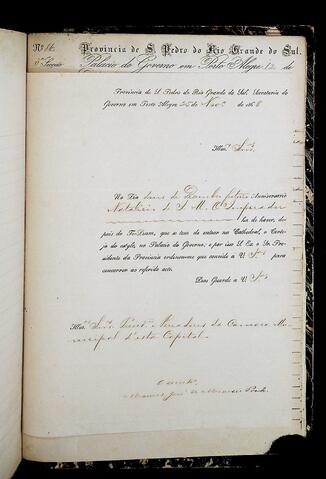 Nº 16 Provincia de S. Pedro do Rio Grande do Sul.
3ª Secção Palacio do Governo em Porto Alegre 12 de
Provincia de S. Pedro do Rio Grande do Sul. Secretaria do
Governo em Porto Alegre 25 de Novº de 1868
No dia dous de Dezembro futuro Anniversario
Natalicio de S M O Imperador
ha de haver, de-
pois do Te-Deum, que a tem de entoar na Cathedral, o Corte-
jo do estylo, no Palacio do Governo: e por isso S. Ex. o Sr. Pre-
sidente da Provincia ordenou-me que convide a V. Sªˢ para
concorrer ao referido acto.
Deos Guarde a V. Sªˢ
Vereadores da Camara Mu-
nicipal d'esta Capital.
O secretº